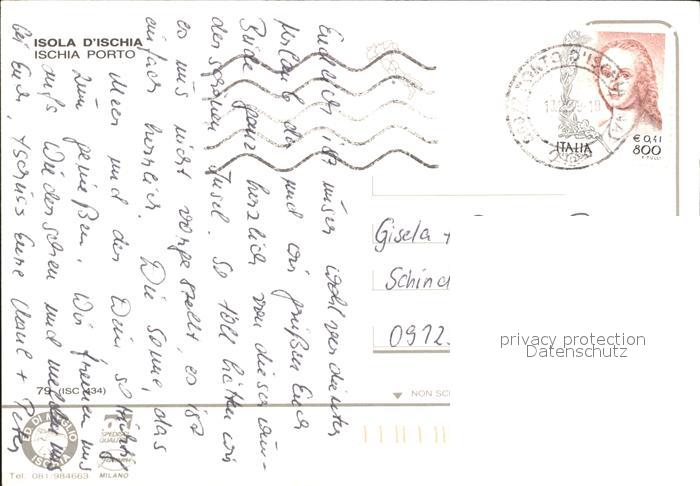 ISOLA D'ISCHIA
ISCHIA PORTO
Endlich ist unser wohlverdienter
Urlaub da und wir grüßen Euch
Beide ganz herzlich von dieser wun-
derschönen Insel. So toll hätten wir
es uns nicht vorgestellt, es ist
einfach herrlich. Die Sonne, das
Meer und der Wein so richtig
zum genießen. Wir freuen uns
aufs Wiedersehen und melden uns
bei Euch, tschüss Eure + Peter
79 (ISC 434)
ED. DI MEGLIO
ISCHIA
Tel. 081/984663
MILANO
ITALIA
€ 0,41
800
Gisela +
Schind
0912.
NON SC
privacy protection
Datenschutz